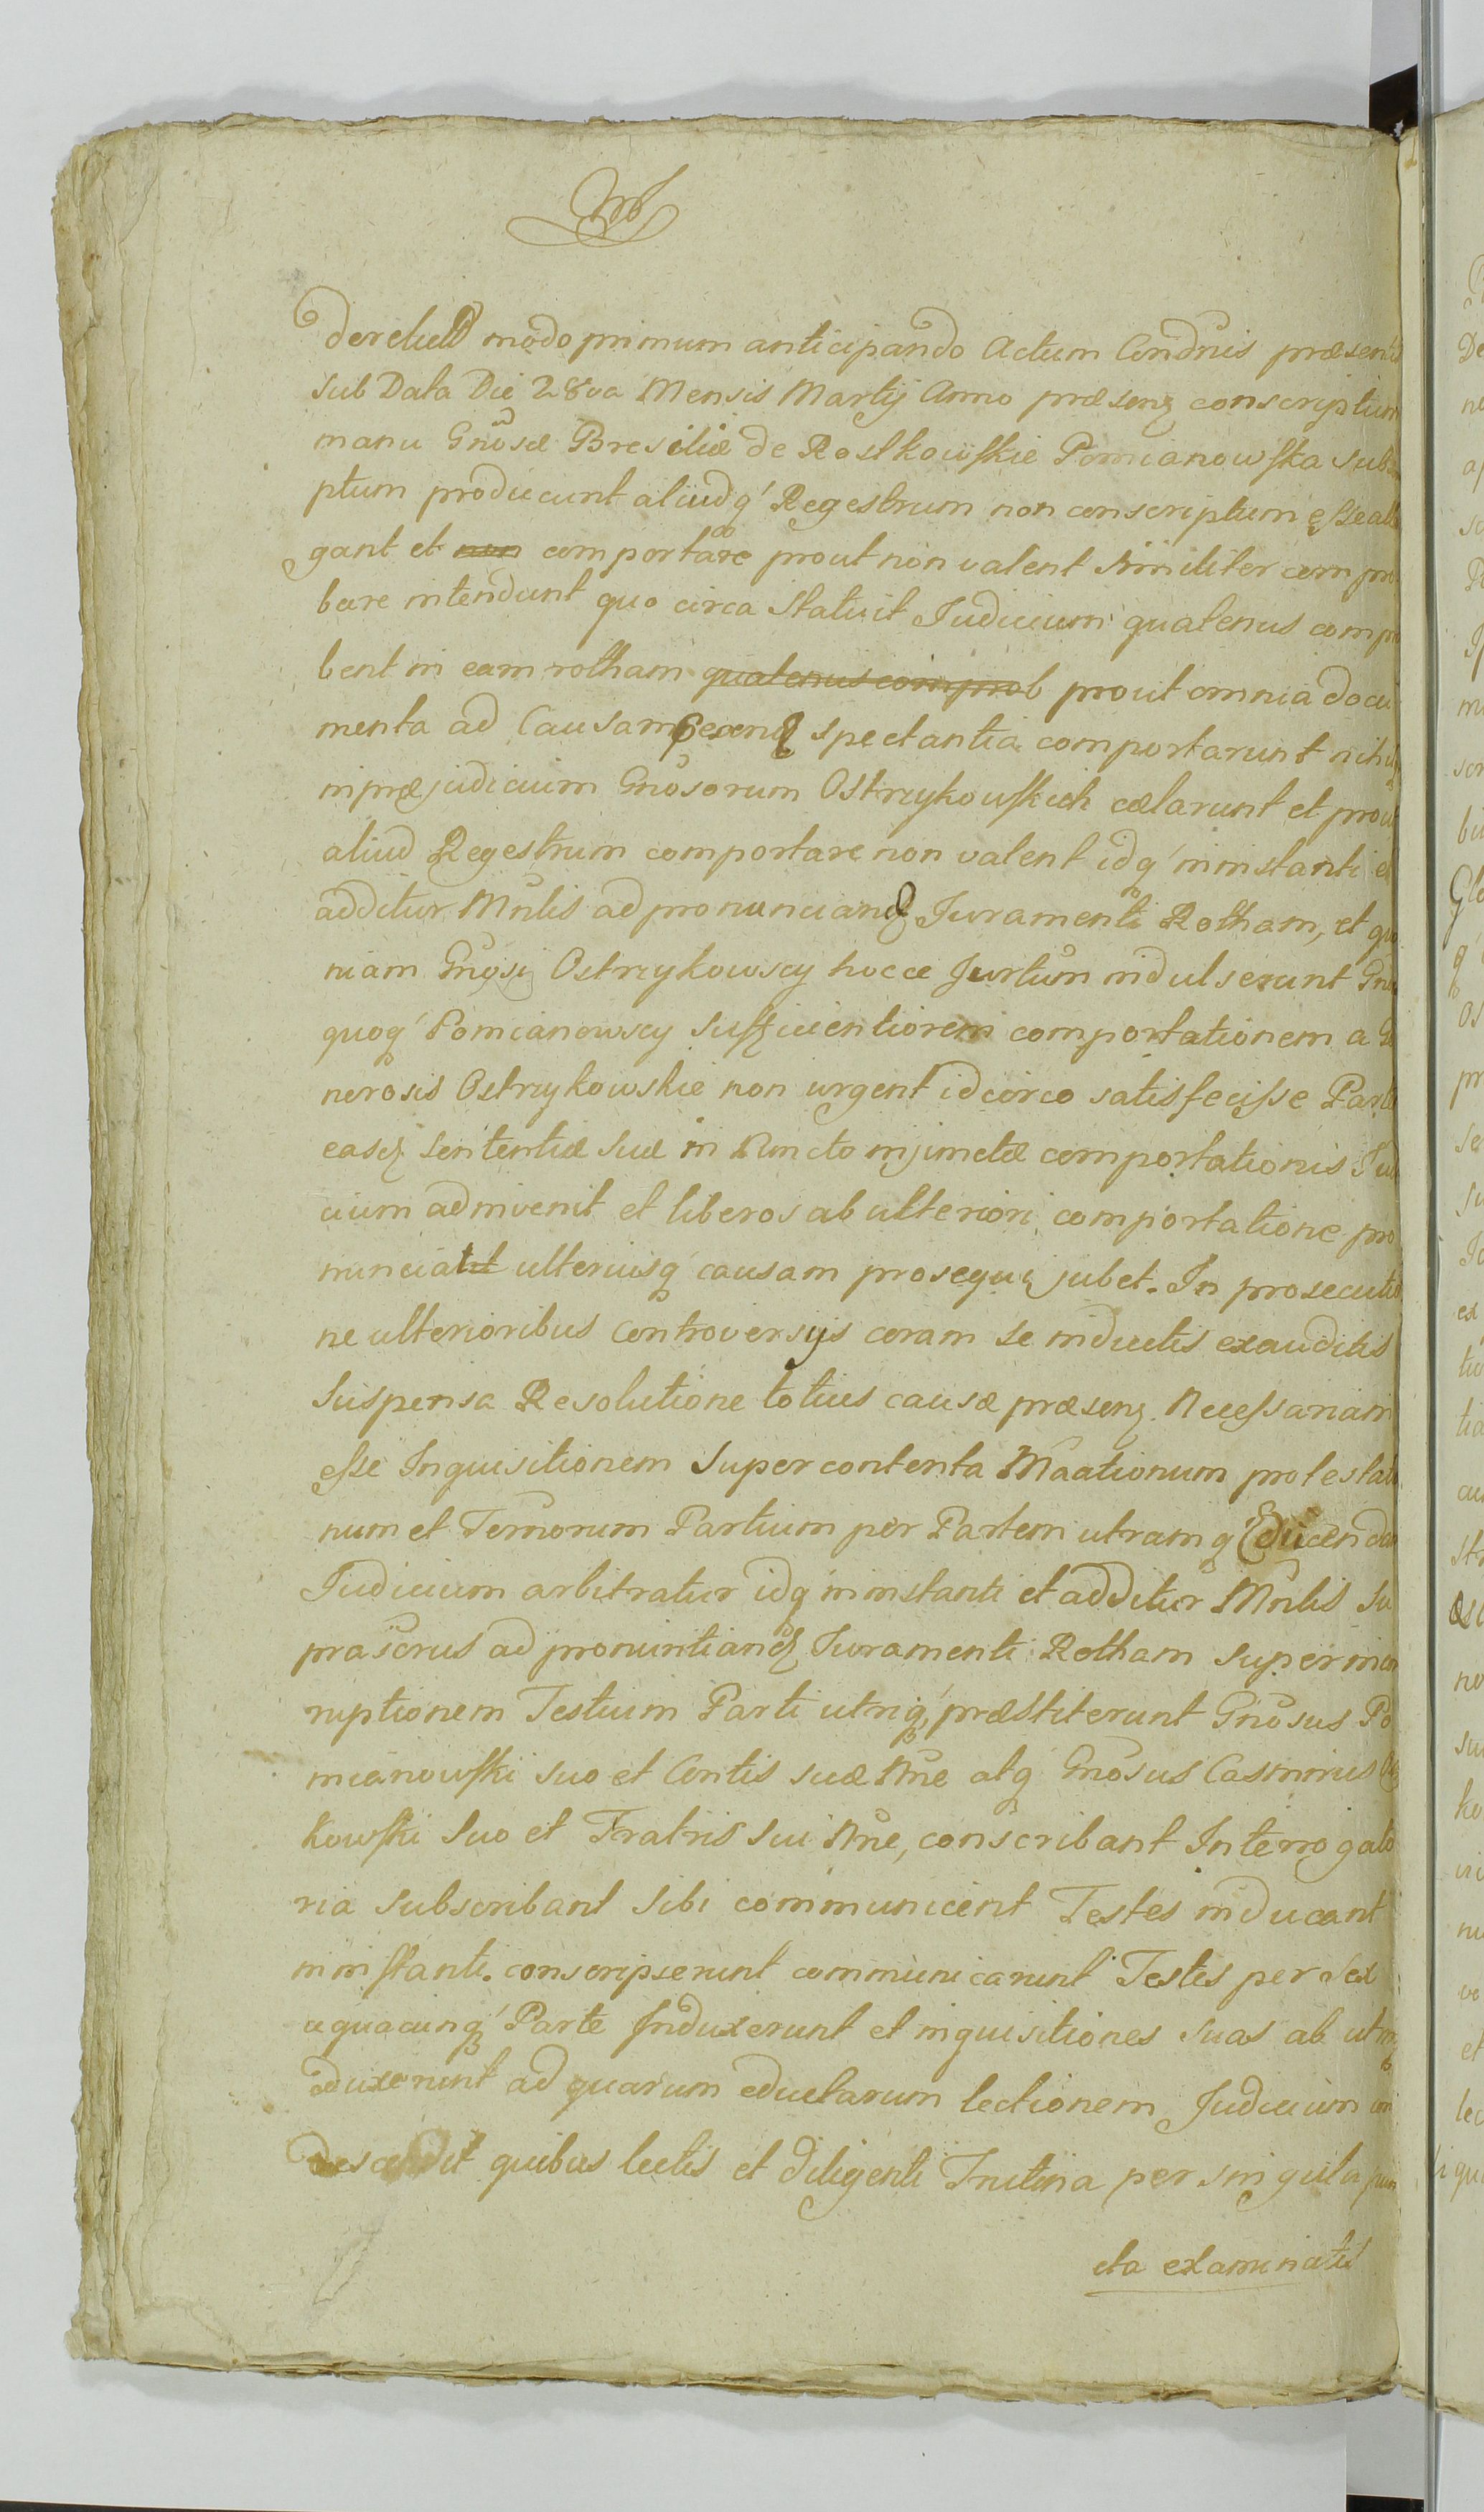 derelict modo primum anticipando Actum Condnis præsentis
sub Data Die 28va Mensis Martij Anno præsenz conscriptum
manu Gnosæ Bresiliæ de Rostkowskie Pomianowska sub
ptum producunt aliudq' Regestrum non conscriptum esse alle
gant et non comportare prout non valent similiter compro
bare intendunt quo circa statuit Judicium quatenus compro
bent in eam rotham qualenus comprob prout omnia docu
menta ad Causam spectantia comportarunt nihilq
in præjudicium Gnosorum Ostrzykowskich cælarunt et prout
aliud Regestrum comportare non valent idq' in instanti et
additur Mnlis ad pronunciand Juramenti Rotham, et quo
niam Gnosi Ostrzykowscy hocce Jurtum indulserunt Gnosi
quoq' Pomianowscy sufficientiorem comportationem a Ge
nerosis Ostrzykowskie non urgent idcirco satisfecisse Partes
easdz sententiæ suæ in Puncto injunctæ comportationis Judi
cium adinvenit et liberos ab ulteriori comportatione pro
nunciat ulteriusq' causam prosequi jubet. In prosecutio
ne ulterioribus Controversijs coram se inductis exauditis
Suspensa Resolutione totius causæ præsenz Necessariam
esse Inquisitionem super contenta Maationum protestatio
num et Termorum Partium per Partem utramq' Educendam
Judicium arbitratur idq' in instanti et additur Mnlis su
prascrus ad pronuntiandz Juramenti Rotham super incor
ruptionem Testium Parti utriq' præstiterunt Gnosus Po
mianowski suo et Contis suæ Nne atq Gnosus Casimirus
kowski suo et Fratris sui Nne, conscribant Interrogato
ria subscribant sibi communicent Testes inducant
in instanti. conscripserunt communicarunt Testes per sex
a quacunq' Parte Induxerunt et inquisitiones suas ab utrinq
eduxerunt ad quarum eductarum lectionem Judicium con
descendit quibus lectis et diligenti Trutina per singula pun
cta examinatis